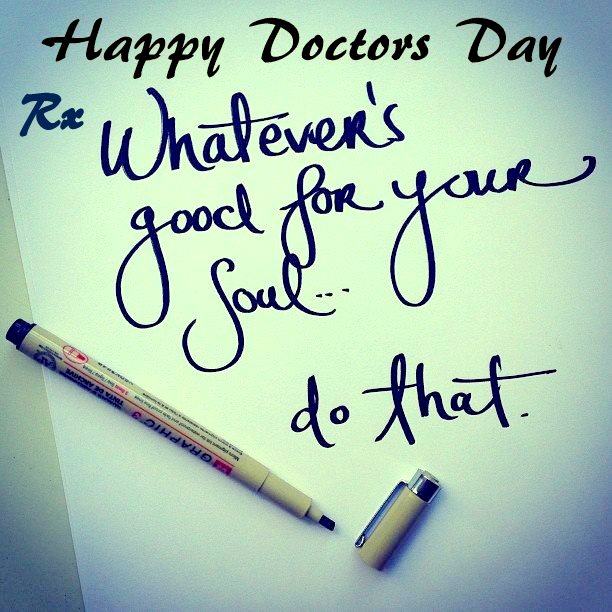 Happy Doctors Day
Rx
Whatever's
good for your
Soul...
do that.
GRAPHIC 3